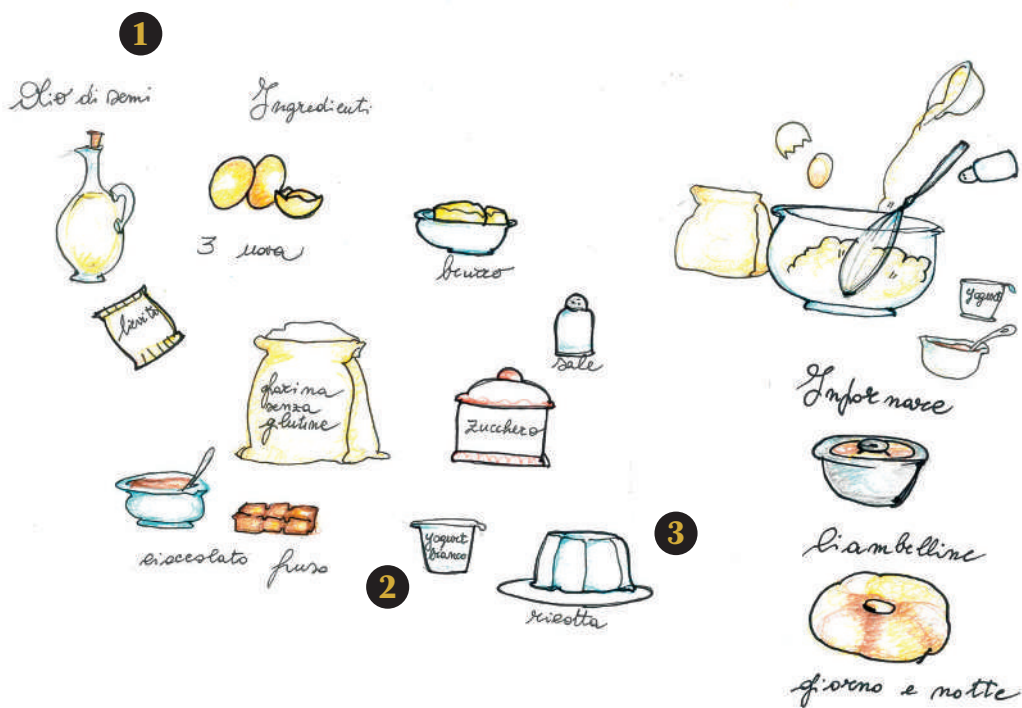 1
Olio di semi
Ingredienti
3 uova
burro
lievito
sale
farina
senza
glutine
zucchero
cioccolato fuso
yogurt
bianco
2
3
ricotta
yogurt
Infornare
Ciambelline
giorno e notte